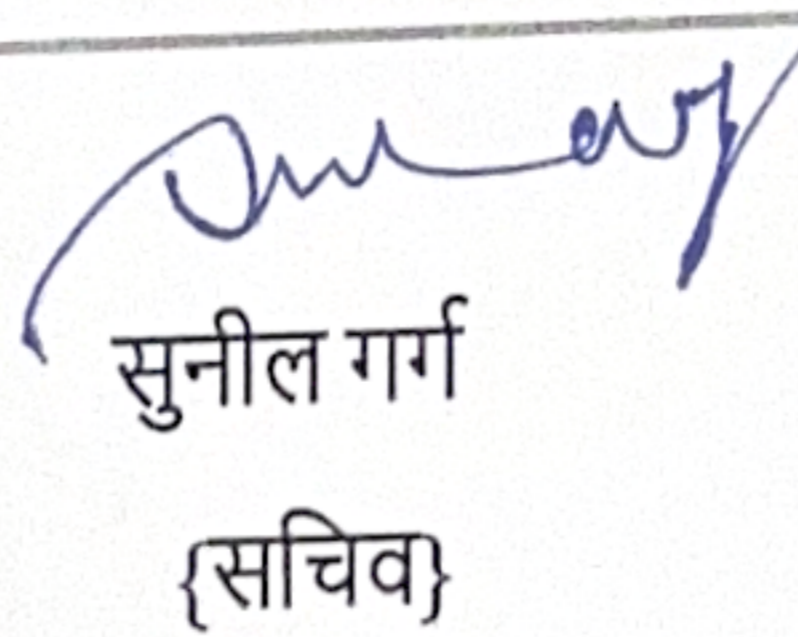 सुनील गर्ग
{सचिव}